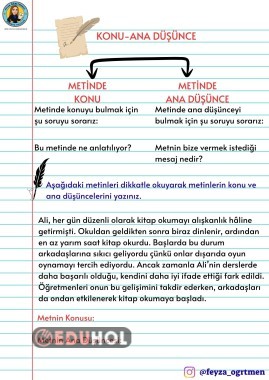 KONU-ANA DÜŞÜNCE
METİNDE
KONU
METİNDE
ANA DÜŞÜNCE
Metinde konuyu bulmak için
şu soruyu sorarız:
Metinde ana düşünceyi
bulmak için şu soruyu sorarız:
Bu metinde ne anlatılıyor?
Metnin bize vermek istediği
mesaj nedir?
Aşağıdaki metinleri dikkatle okuyarak metinlerin konu ve
ana düşüncelerini yazınız.
Ali, her gün düzenli olarak kitap okumayı alışkanlık hâline
getirmişti. Okuldan geldikten sonra biraz dinlenir, ardından
en az yarım saat kitap okurdu. Başlarda bu durum
arkadaşlarına sıkıcı geliyordu çünkü onlar dışarıda oyun
oynamayı tercih ediyordu. Ancak zamanla Ali'nin derslerde
daha başarılı olduğu, kendini daha iyi ifade ettiği fark edildi.
Öğretmenleri onun bu gelişimini takdir ederken, arkadaşları
da ondan etkilenerek kitap okumaya başladı.
Metnin Konusu:
EDUHOL
Metnin Ana Düşüncesi:
@feyza_ogrtmen